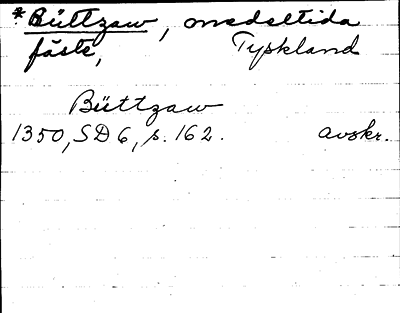 *Büttzaw, medeltida
fäste, Tyskland
Büttzaw
1350, SD 6, s. 162. avskr.